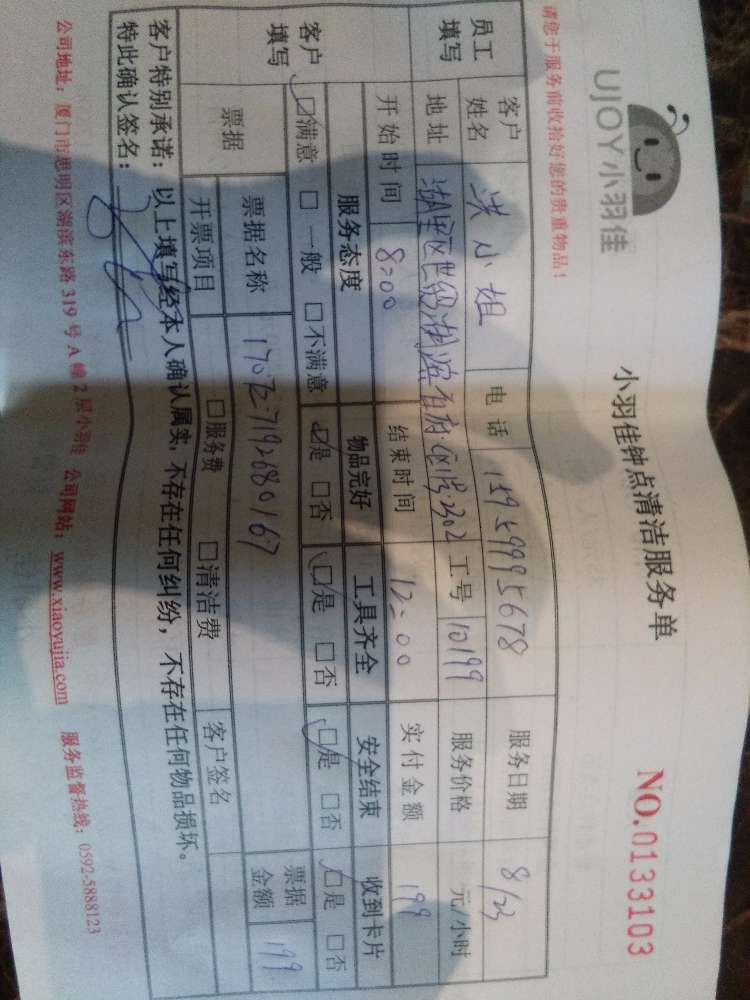 UJOY小羽佳
小羽佳钟点清洁服务单
NO.0133103
请您于服务前收拾好您的贵重物品!
员工填写
客户姓名 洪小姐 电话 15959995678 服务日期 8/23
地址 湖里区 2302 工号 10199 服务价格 元/小时
开始时间 8:00 结束时间 12:00 实付金额 199
客户填写
服务态度 物品完好 工具齐全 安全结束 收到卡片
☑满意 □一般 □不满意 ☑是 □否 ☑是 □否 ☑是 □否 ☑是 □否
票据 票据名称 票据金额 199
开票项目 □服务费 □清洁费 客户签名
客户特别承诺:以上填写经本人确认属实,不存在任何纠纷,不存在任何物品损坏。
特此确认签名:
公司地址:厦门市思明区湖滨东路319号A幢2层小羽佳 公司网站:www.xiaoyujia.com 服务监督热线:0592-5888123